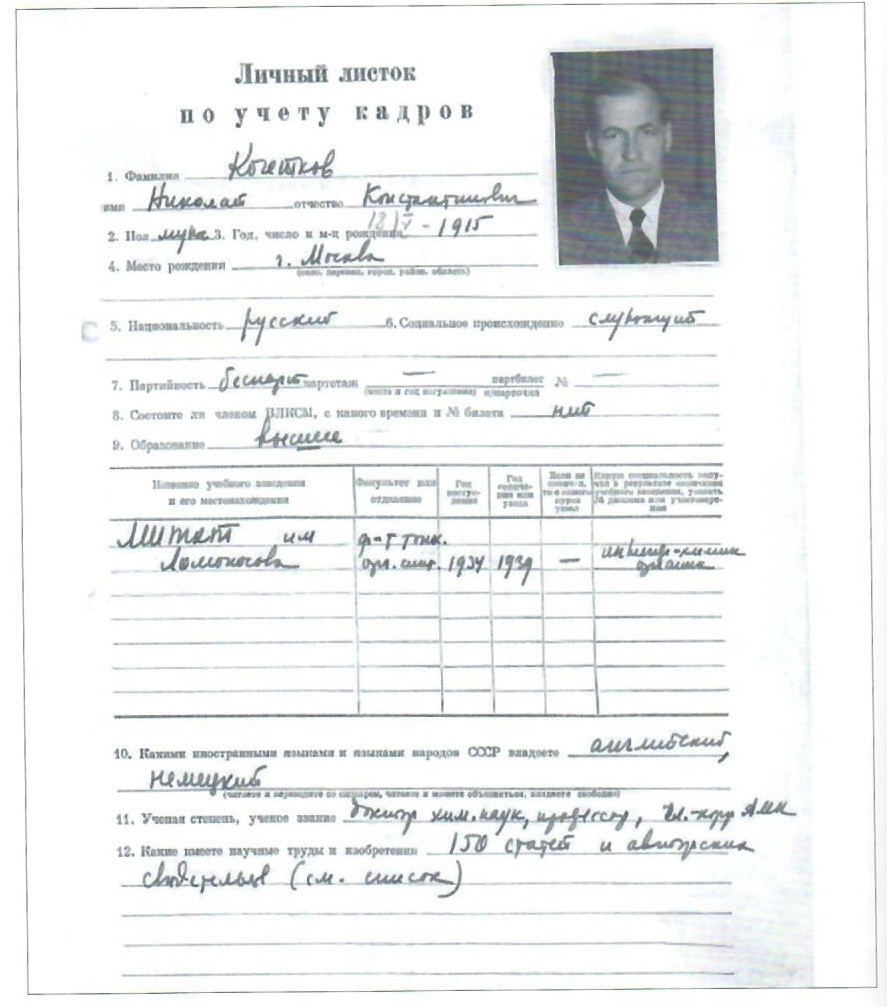 Личный листок
по учету кадров
1. Фамилия Кочетков
имя Николай отчество Константинович
2. Пол муж. 3. Год, число и м-ц рождения 18 V - 1915
4. Место рождения г. Москва
(село, деревня, город, район, область)
5. Национальность русский 6. Социальное происхождение служащий
7. Партийность беспарт. партстаж — партбилет № —
(место и год вступления) к/карточка
8. Состоите ли членом ВЛКСМ, с какого времени и № билета нет
9. Образование высшее
Название учебного заведения и его местонахождения
Факультет или отделение
Год поступления
Год окончания или ухода
Если не окончил, то с какого курса ушел
Какую специальность получил в результате окончания учебного заведения, указать № диплома или удостоверения
МИТХТ им ф-т тонк.
Ломоносова орг. синт. 1934 1939 — инженер-химик
органик
10. Какими иностранными языками и языками народов СССР владеете английский,
немецкий
(читаете и переводите со словарем, читаете и можете объясняться, владеете свободно)
11. Ученая степень, ученое звание доктор хим. наук, профессор, чл.-корр АМН
12. Какие имеете научные труды и изобретения 150 статей и авторских
свидетельств (см. список)